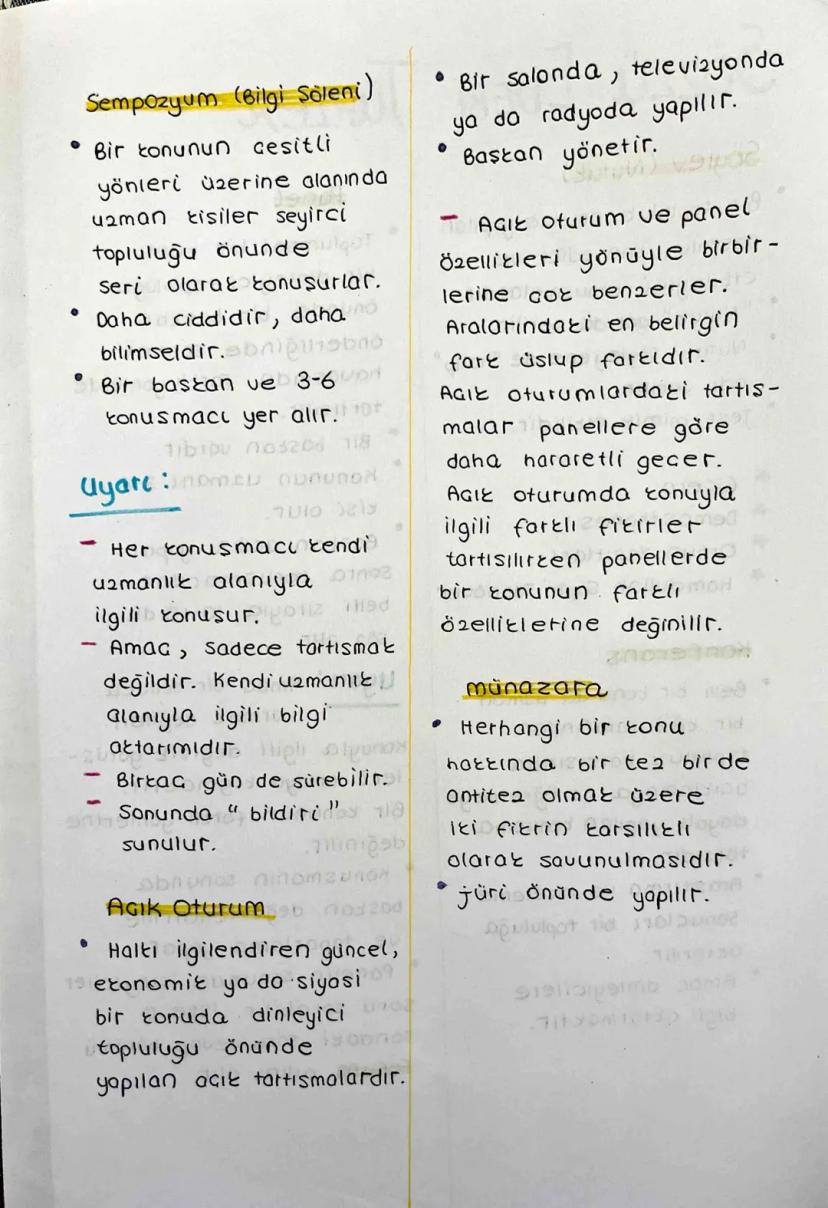 Sempozyum (Bilgi Şöleni)
• Bir konunun çeşitli
yönleri üzerine alanında
uzman kişiler seyirci
topluluğu önünde
seri olarak konuşurlar.
• Daha ciddidir, daha
bilimseldir.
• Bir başkan ve 3-6
konuşmacı yer alır.
Uyarı:
- Her konuşmacı kendi
uzmanlık alanıyla
ilgili konuşur.
- Amaç, sadece tartışmak
değildir. Kendi uzmanlık
alanıyla ilgili bilgi
aktarımıdır.
- Birkaç gün de sürebilir.
- Sonunda "bildiri"
sunulur.
Açık Oturum
• Halkı ilgilendiren güncel,
ekonomik ya da siyasi
bir konuda dinleyici
topluluğu önünde
yapılan açık tartışmalardır.
• Bir salonda, televizyonda
ya da radyoda yapılır.
• Başkan yönetir.
- Açık oturum ve panel
özellikleri yönüyle birbir-
lerine çok benzerler.
Aralarındaki en belirgin
fark üslup farkıdır.
Açık oturumlardaki tartış-
malar panellere göre
daha hararetli geçer.
Açık oturumda konuyla
ilgili farklı fikirler
tartışılırken panellerde
bir konunun farklı
özelliklerine değinilir.
münazara
• Herhangi bir konu
hakkında bir tez bir de
antitez olmak üzere
iki fikrin karşılıklı
olarak savunulmasıdır.
• jüri önünde yapılır.